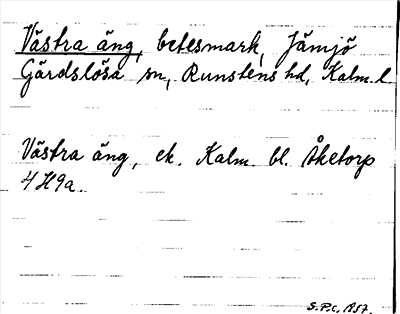 Västra äng, betesmark, Jämjö
Gärdslösa sn, Runstens hd, Kalm. l
Västra äng, ek. Kalm. bl. Åketorp
4 H 9a.
S.P.c. 1957.